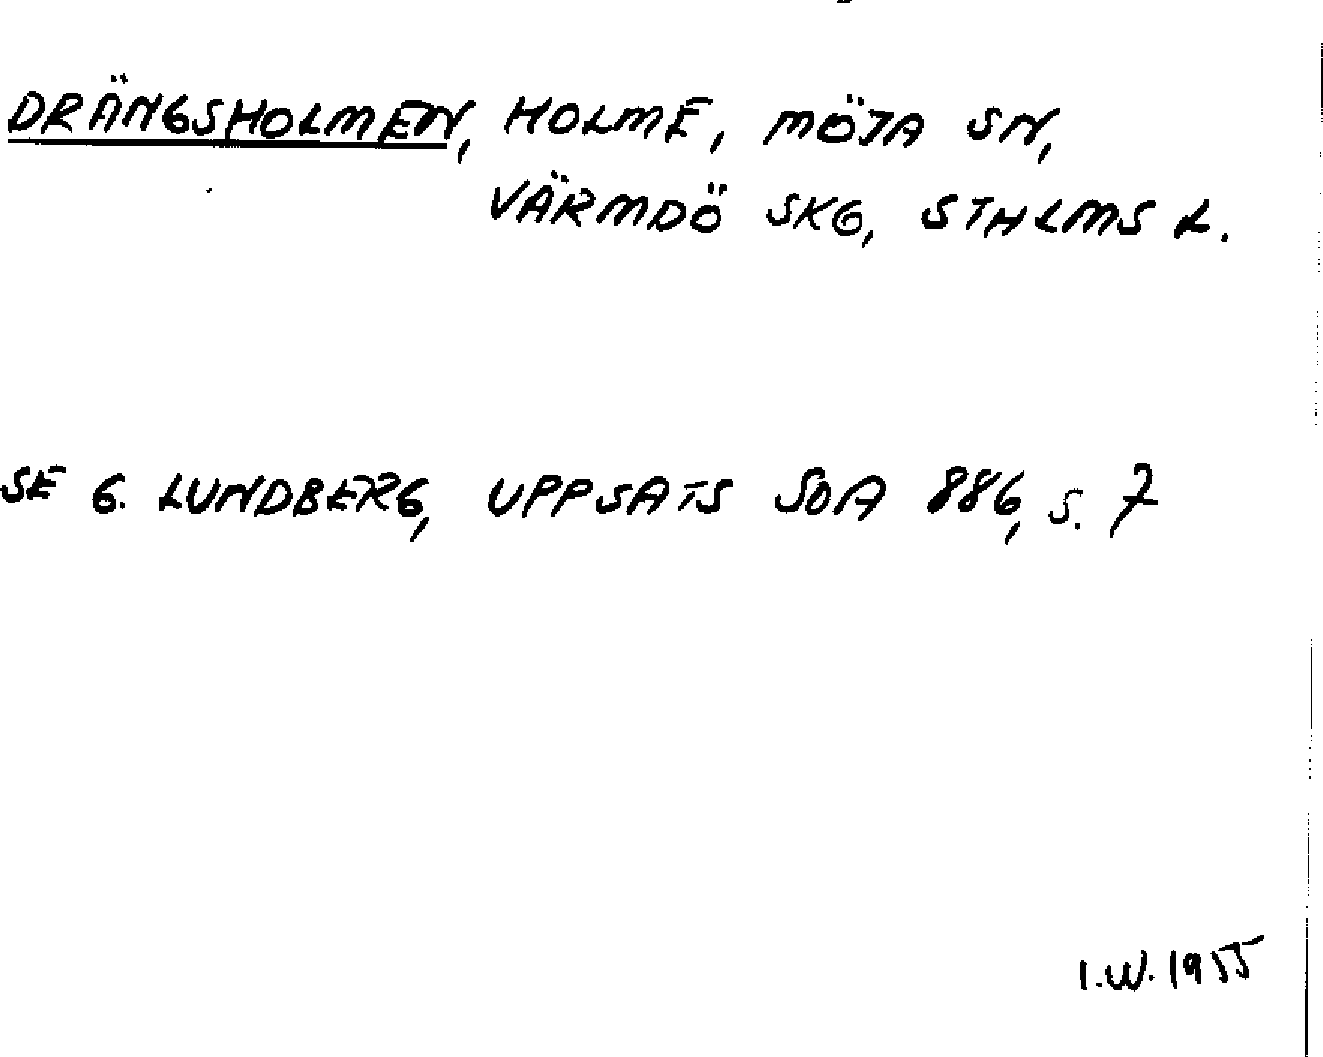 DRÄNGSHOLMEN, HOLME, MÖJA SN,
VÄRMDÖ SKG, STHLMS L.
SE G. LUNDBERG, UPPSATS SOA 886, S. 7
I.W. 1955